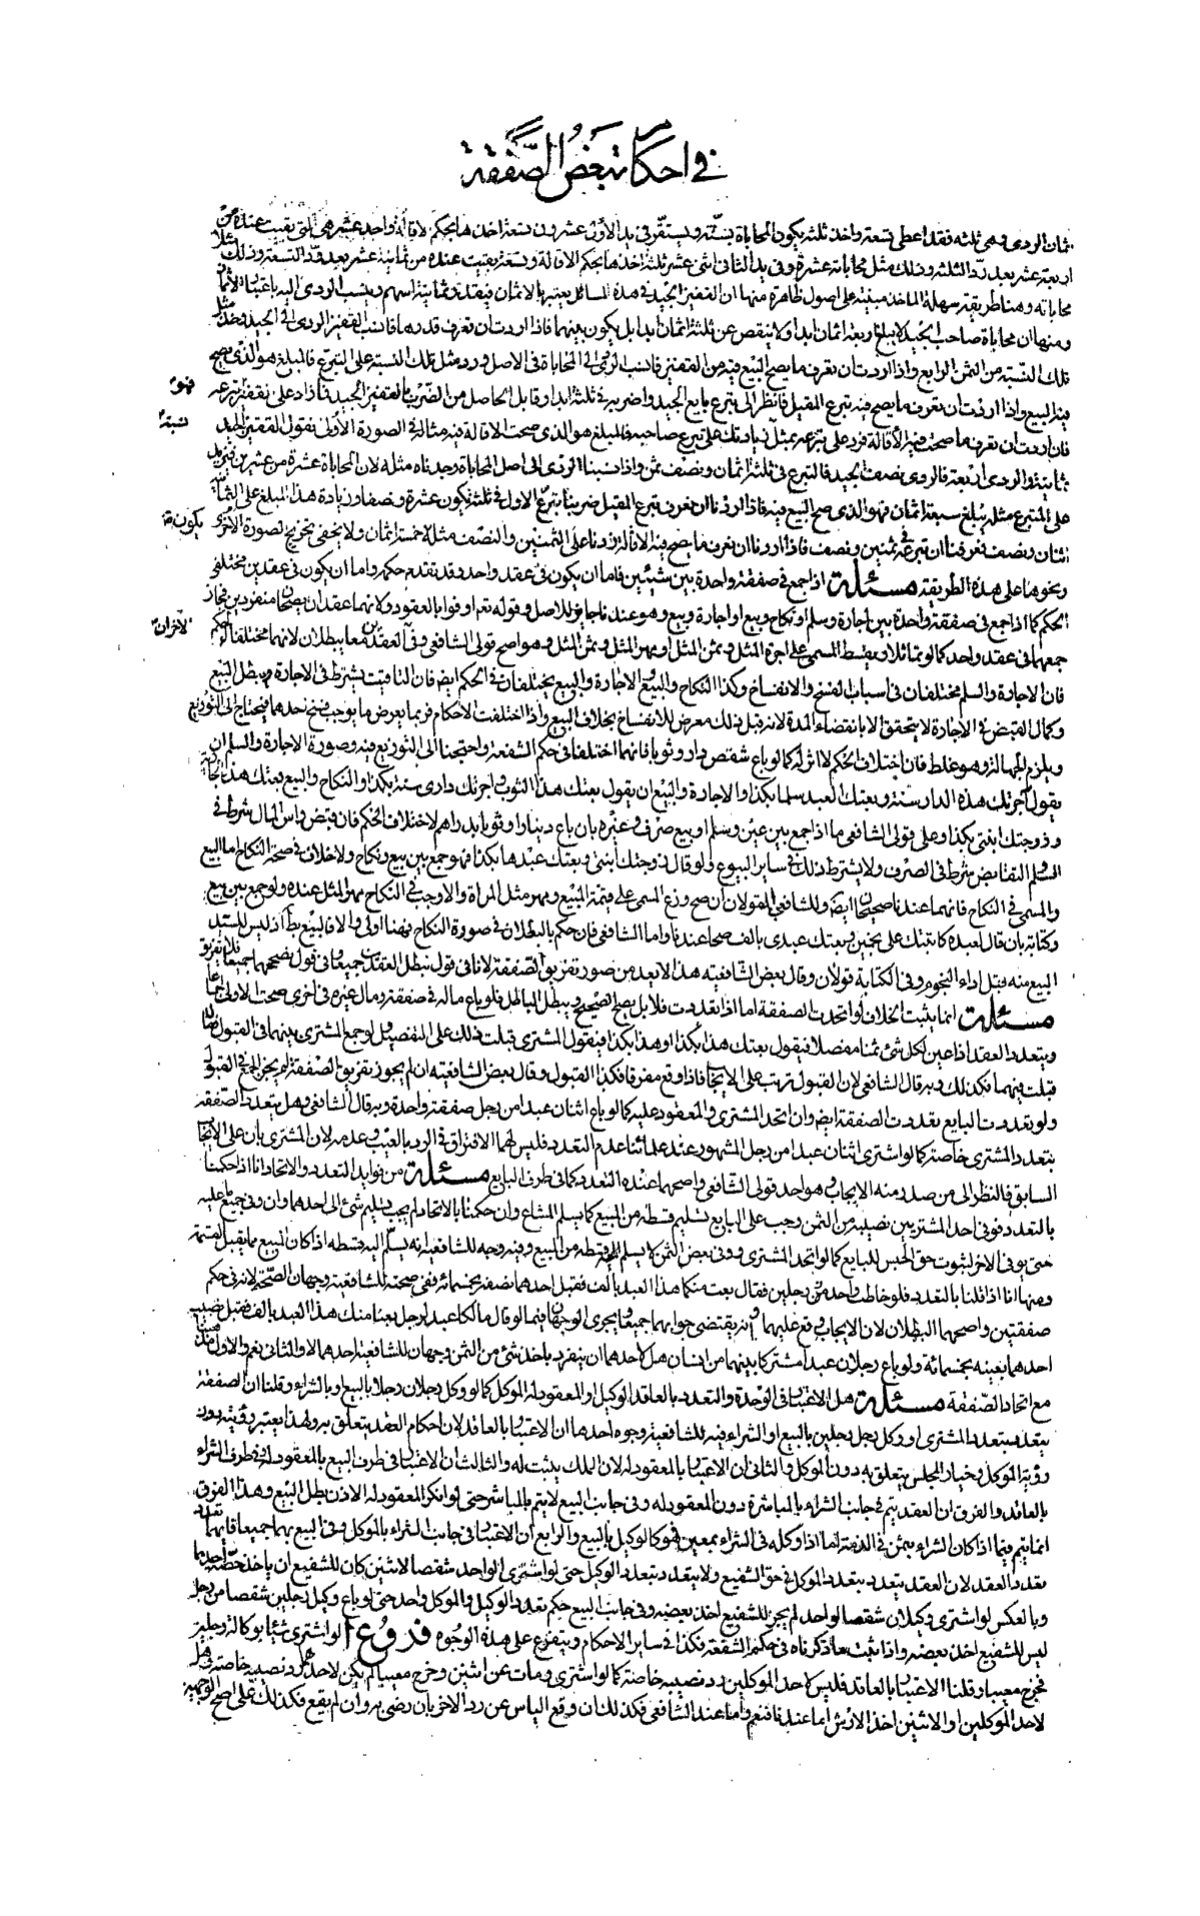 في احكام تبعض الصفقة
اثمان الردى وهى ثلثه فقد اعطى تسعة واخذ ثلثه يكون المحاباة بستة ويستقر في يد الأول عشرون تسعة اخذها بحكم الاقالة واحد عشر هى التى بقيت عنده من
اربعة عشر بعد رد الثلثة وذلك مثل محاباته عشرة وفى يد الثانى اثنى عشر ثلثة اخذها بحكم الاقالة وتسعة بقيت عنده من ثمانية عشر بعد التسعة وذلك مثلا
محاباته وهنا طريقة سهلة الماخذ مبنية على اصول ظاهرة منها ان القفيز الجيد في هذه المسائل يعتبر بالاثمان فيقدر ثمانية اسهم وينسب الردى اليه باعتبار الأثمان
ومنها ان محاباة صاحب الجيد لا يبلغ اربعة اثمان ابدا ولا ينقص عن ثلثة اثمان ابدا بل يكون بينهما فاذا اردت ان تعرف قدرها فانسب القفيز الردى الى الجيد فخذ مثل
تلك النسبة من الثمن الرابع واذا اردت ان تعرف ما يصح البيع فيه من القفيز فانسب الردى الى المحاباة فى الاصل وزد مثل تلك النسبة على التبرع فالمبلغ هو الذى يصح
فيه البيع واذا اردت ان تعرف ما يصح فيه تبرع المقيل فانظر الى تبرع بايع الجيد واضربه في ثلثة ابدا وقابل الحاصل من الضرب بالقفيز الجيد فما زاد على نقفيز تبرعه فهو
فان اردت ان تعرف ما صحت فيه الأقالة فزد على تبرعه بمثل زيادتك على تبرع صاحبه فالمبلغ هو الذى صحت الاقالة فيه مثاله في الصورة الأولى نقول القفيز الجيد نسبة
ثمانية والردى اربعة فالردى نصف الجيد فالتبرع في ثلثة اثمان ونصف ثمن واذا نسبنا الردى الى اصل المحاباة وجدناه مثله لان المحاباة عشرة من عشرين فنزيد
على المتبرع مثله يبلغ سبعة اثمان فهو الذى صح البيع فيه فاذا اردنا ان نعرف تبرع المقيل ضربنا تبرع الاول في ثلثة يكون عشرة ونصفا وزيادة هذا المبلغ على الثمانية
اثنان ونصف فعرفنا ان تبرعه ثمنين ونصف فاذا اردنا ان نعرف ما يصح فيه الاقالة زدنا على الثمنين والنصف مثله خمسة اثمان ولا يخفى تخريج الصورة الأخرى يكون
ونحوها على هذه الطريقة مسئلة اذا جمع في صفقة واحدة بين شيئين فاما ان يكون في عقد واحد وقد تقدم حكمه واما ان يكون في عقدين مختلفى
الحكم كما اذا جمع في صفقة واحدة بين اجارة وسلم او نكاح وبيع او اجارة وبيع وهو عندنا جايز للاصل وقوله تعالى اوفوا بالعقود ولانهما عقدان يصحان منفردين فجاز
جمعهما في عقد واحد كما لو تماثلا ويقسط المسمى على اجرة المثل وثمن المثل او مهر المثل وثمن المثل وهو اصح قولى الشافعى وفى الاخر ان العقدين معا يبطلان لانهما مختلفا الحكم
فان الاجارة والسلم مختلفان في اسباب الفسخ والانفساخ وكذا النكاح والبيع والاجارة والبيع يختلفان في الحكم ايضا فان التاقيت يشترط في الاجارة ويبطل البيع
وكمال القبض في الاجارة لا يتحقق الا بانقضاء المدة لانه قبل ذلك معرض للانفساخ بخلاف البيع واذا اختلفت الاحكام فربما يعرض ما يوجب فسخ احدهما فيحتاج الى التوزيع
ويلزم الجهالة وهو غلط فان اختلاف الحكم لا اثر له كما لو باع شقص دار وثوبا فانهما اختلفا في حكم الشفعة واحتجنا الى التوزيع فيه وصورة الاجارة والسلم ان
يقول آجرتك هذه الدار سنة وبعتك العبد سلما بكذا والاجارة والبيع ان يقول بعتك هذا الثوب واجرتك دارى سنة بكذا والنكاح والبيع بعتك هذه الجارية
وزوجتك ابنتى بكذا وعلى قولى الشافعى ما اذا جمع بين عين وسلم او بيع صرف وغيره بان باع دينارا وثوبا بدراهم لاختلاف الحكم فان قبض راس المال شرط في
السلم والتقابض شرط في الصرف ولا يشترط ذلك في ساير البيوع ولو قال زوجتك ابنتى وبعتك عبدها بكذا فهو جمع بين بيع ونكاح ولا خلاف في صحة النكاح اما البيع
والمسمى في النكاح فانهما عندنا صحيحان ايضا وللشافعى القولان ان صح وزع المسمى على قيمة المبيع ومهر مثل المراة والا وجب في النكاح مهر المثل عنده ولو جمع بين بيع
وكتابة بان قال لعبده كاتبتك على نجمين وبعتك عبدى بالف صحا عندنا واما الشافعى فان حكم بالبطلان في صورة النكاح فهنا اولى والا فالبيع بط اذ ليس للسيد
البيع منه قبل اداء النجوم وفى الكتابة قولان وقال بعض الشافعية هذا لا يعد من صور تفريق الصفقة لانا في قول نبطل العقدين جميعا وفى قول نصححهما جميعا فلا تفريق
مسئلة انما يثبت الخلاف لو اتحدت الصفقة اما اذا تعددت فلا بل يصح الصحيح ويبطل الباطل فلو باع ماله في صفقة ومال غيره في اخرى صحت الاولى اجماعا
ويتعدد العقد اذا عين لكل شئ ثمنا مفصلا فيقول بعتك هذا بكذا وهذا بكذا فيقول المشترى قبلت ذلك على التفصيل ولو جمع المشترى بينهما في القبول فقال
قبلت فيهما فكذلك وبه قال الشافعى لان القبول ترتب على الايجاب فاذا وقع مفرقا فكذا القبول وقال بعض الشافعية ان لم يجوز تفريق الصفقة لم يجز الجمع في القبول
ولو تعددت البايع تعددت الصفقة ايضا وان اتحد المشترى والمعقود عليه كما لو باع اثنان عبدا من رجل صفقة واحدة وبه قال الشافعى وهل يتعدد الصفقة
بتعدد المشترى خاصة كما لو اشترى اثنان عبدا من رجل المشهور عند علمائنا عدم التعدد فليس لهما الافتراق في الرد بالعيب وعدمه لان المشترى بان على الايجاب
السابق فالنظر الى من صدر منه الايجاب وهو احد قولى الشافعى واصحهما عنده التعدد كما في طرف البايع مسئلة من فوايد التعدد والاتحاد انا اذا حكمنا
بالتعدد فوفى احد المشتريين نصيبه من الثمن وجب على البايع تسليم قسطه من المبيع كما يسلم المشاع وان حكمنا بالاتحاد لم يجب تسليم شئ الى احدهما وان وفى جميع ما عليه
حتى يوفى الاخر لثبوت حق الحبس للبايع كما لو اتحد المشترى ووفى بعض الثمن لا يسلم اليه قسطه من المبيع وفيه وجه للشافعية انه يسلم اليه قسطه اذا كان المبيع مما يقبل القسمة
ومنها انا اذا قلنا بالتعدد فلو خاطب واحد من رجلين فقال بعت منكما هذا العبد بالف فقبل احدهما نصفه بخمسمائة ففى صحته للشافعية وجهان الصحة لانه في حكم
صفقتين واصحهما البطلان لان الايجاب وقع عليهما وانه يقتضى جوابهما جميعا ويجرى الوجهان فيما لو قال مالكا عبد لرجل بعنا منك هذا العبد بالف فقبل نصيب
احدهما بعينه بخمسمائة ولو باع رجلان عبدا مشتركا بينهما من انسان هل لاحدهما ان ينفرد باخذ شئ من الثمن وجهان للشافعية احدهما لا والثانى نعم والاول عندنا
مع اتحاد الصفقة مسئلة هل الاعتبار في الوحدة والتعدد بالعاقد الوكيل او المعقود له الموكل كما لو وكل رجلان رجلا بالبيع او بالشراء وقلنا ان الصفقة
يتعدد بتعدد المشترى او وكل رجل رجلين بالبيع او الشراء فيه للشافعية وجوه احدها ان الاعتبار بالعاقد لان احكام العقد يتعلق به ولهذا يعتبر رؤيته دون
رؤية الموكل وخيار المجلس يتعلق به دون الموكل والثانى ان الاعتبار بالمعقود له لان الملك يثبت له والثالث ان الاعتبار في طرف البيع بالمعقود له وفى طرف الشراء
بالعاقد والفرق ان العقد يتم في جانب الشراء بالمباشرة دون المعقود له وفى جانب البيع لا يتم بالمباشر حتى لو انكر المعقود له الاذن بطل البيع وهذا الفرق
انما يتم فيما اذا كان الشراء بثمن في الذمة اما اذا وكله في الشراء بمعين فهو كالوكيل بالبيع والرابع ان الاعتبار في جانب الشراء بالموكل وفى البيع بهما جميعا فايهما تعدد
تعدد العقد لان العقد يتعدد بتعدد الموكل في حق الشفيع ولا يتعدد بتعدد الوكيل حتى لو اشترى الواحد شقصا لاثنين كان للشفيع ان ياخذ حصة احدهما
وبالعكس لو اشترى وكيلان شقصا لواحد لم يجز للشفيع اخذ بعضه وفى جانب البيع حكم تعدد الوكيل والموكل واحد حتى لو باع وكيل رجلين شقصا من رجل
ليس للشفيع اخذ بعضه واذا ثبت ما ذكرناه في حكم الشفعة فكذا في ساير الاحكام ويتفرع على هذه الوجوه فروع ا لو اشترى شيئا بوكالة رجلين
فخرج معيبا وقلنا الاعتبار بالعاقد فليس لاحد الموكلين رد نصيبه خاصة كما لو اشترى ومات عن اثنين وخرج معيبا لم يكن لاحدهما رد نصيبه خاصة وهل
لاحد الموكلين او الاثنين اخذ الارش اما عندنا فنعم واما عند الشافعى فكذلك ان وقع الياس عن رد الاخر بان رضى به وان لم يقع فكذلك على اصح الوجهين